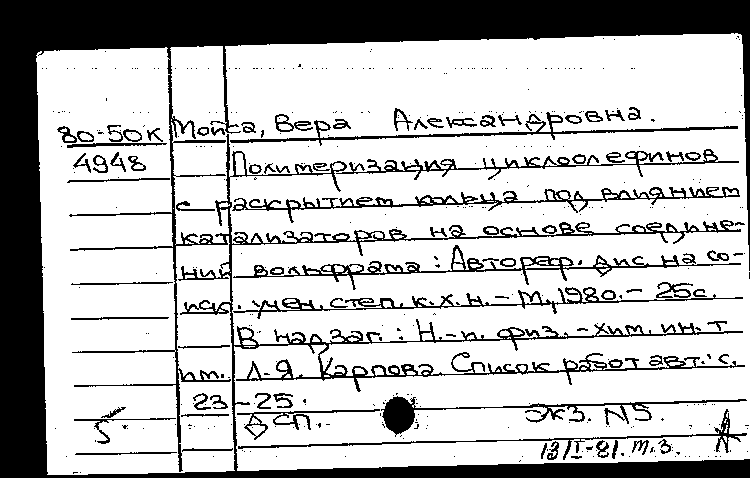 80-50к Мойса, Вера Александровна.
4948 Полимеризация циклоолефинов
с раскрытием кольца под влиянием
катализаторов на основе соедине-
ний вольфрама: Автореф. дис. на со-
иск. учен. степ. к. х. н. - М., 1980. - 25с.
В надзаг.: Н.-и. физ.-хим. ин. т
им. Л.Я. Карпова. Список работ авт.: с.
23-25.
5 ДСП. Экз. N5.
13/I-81. т.з.